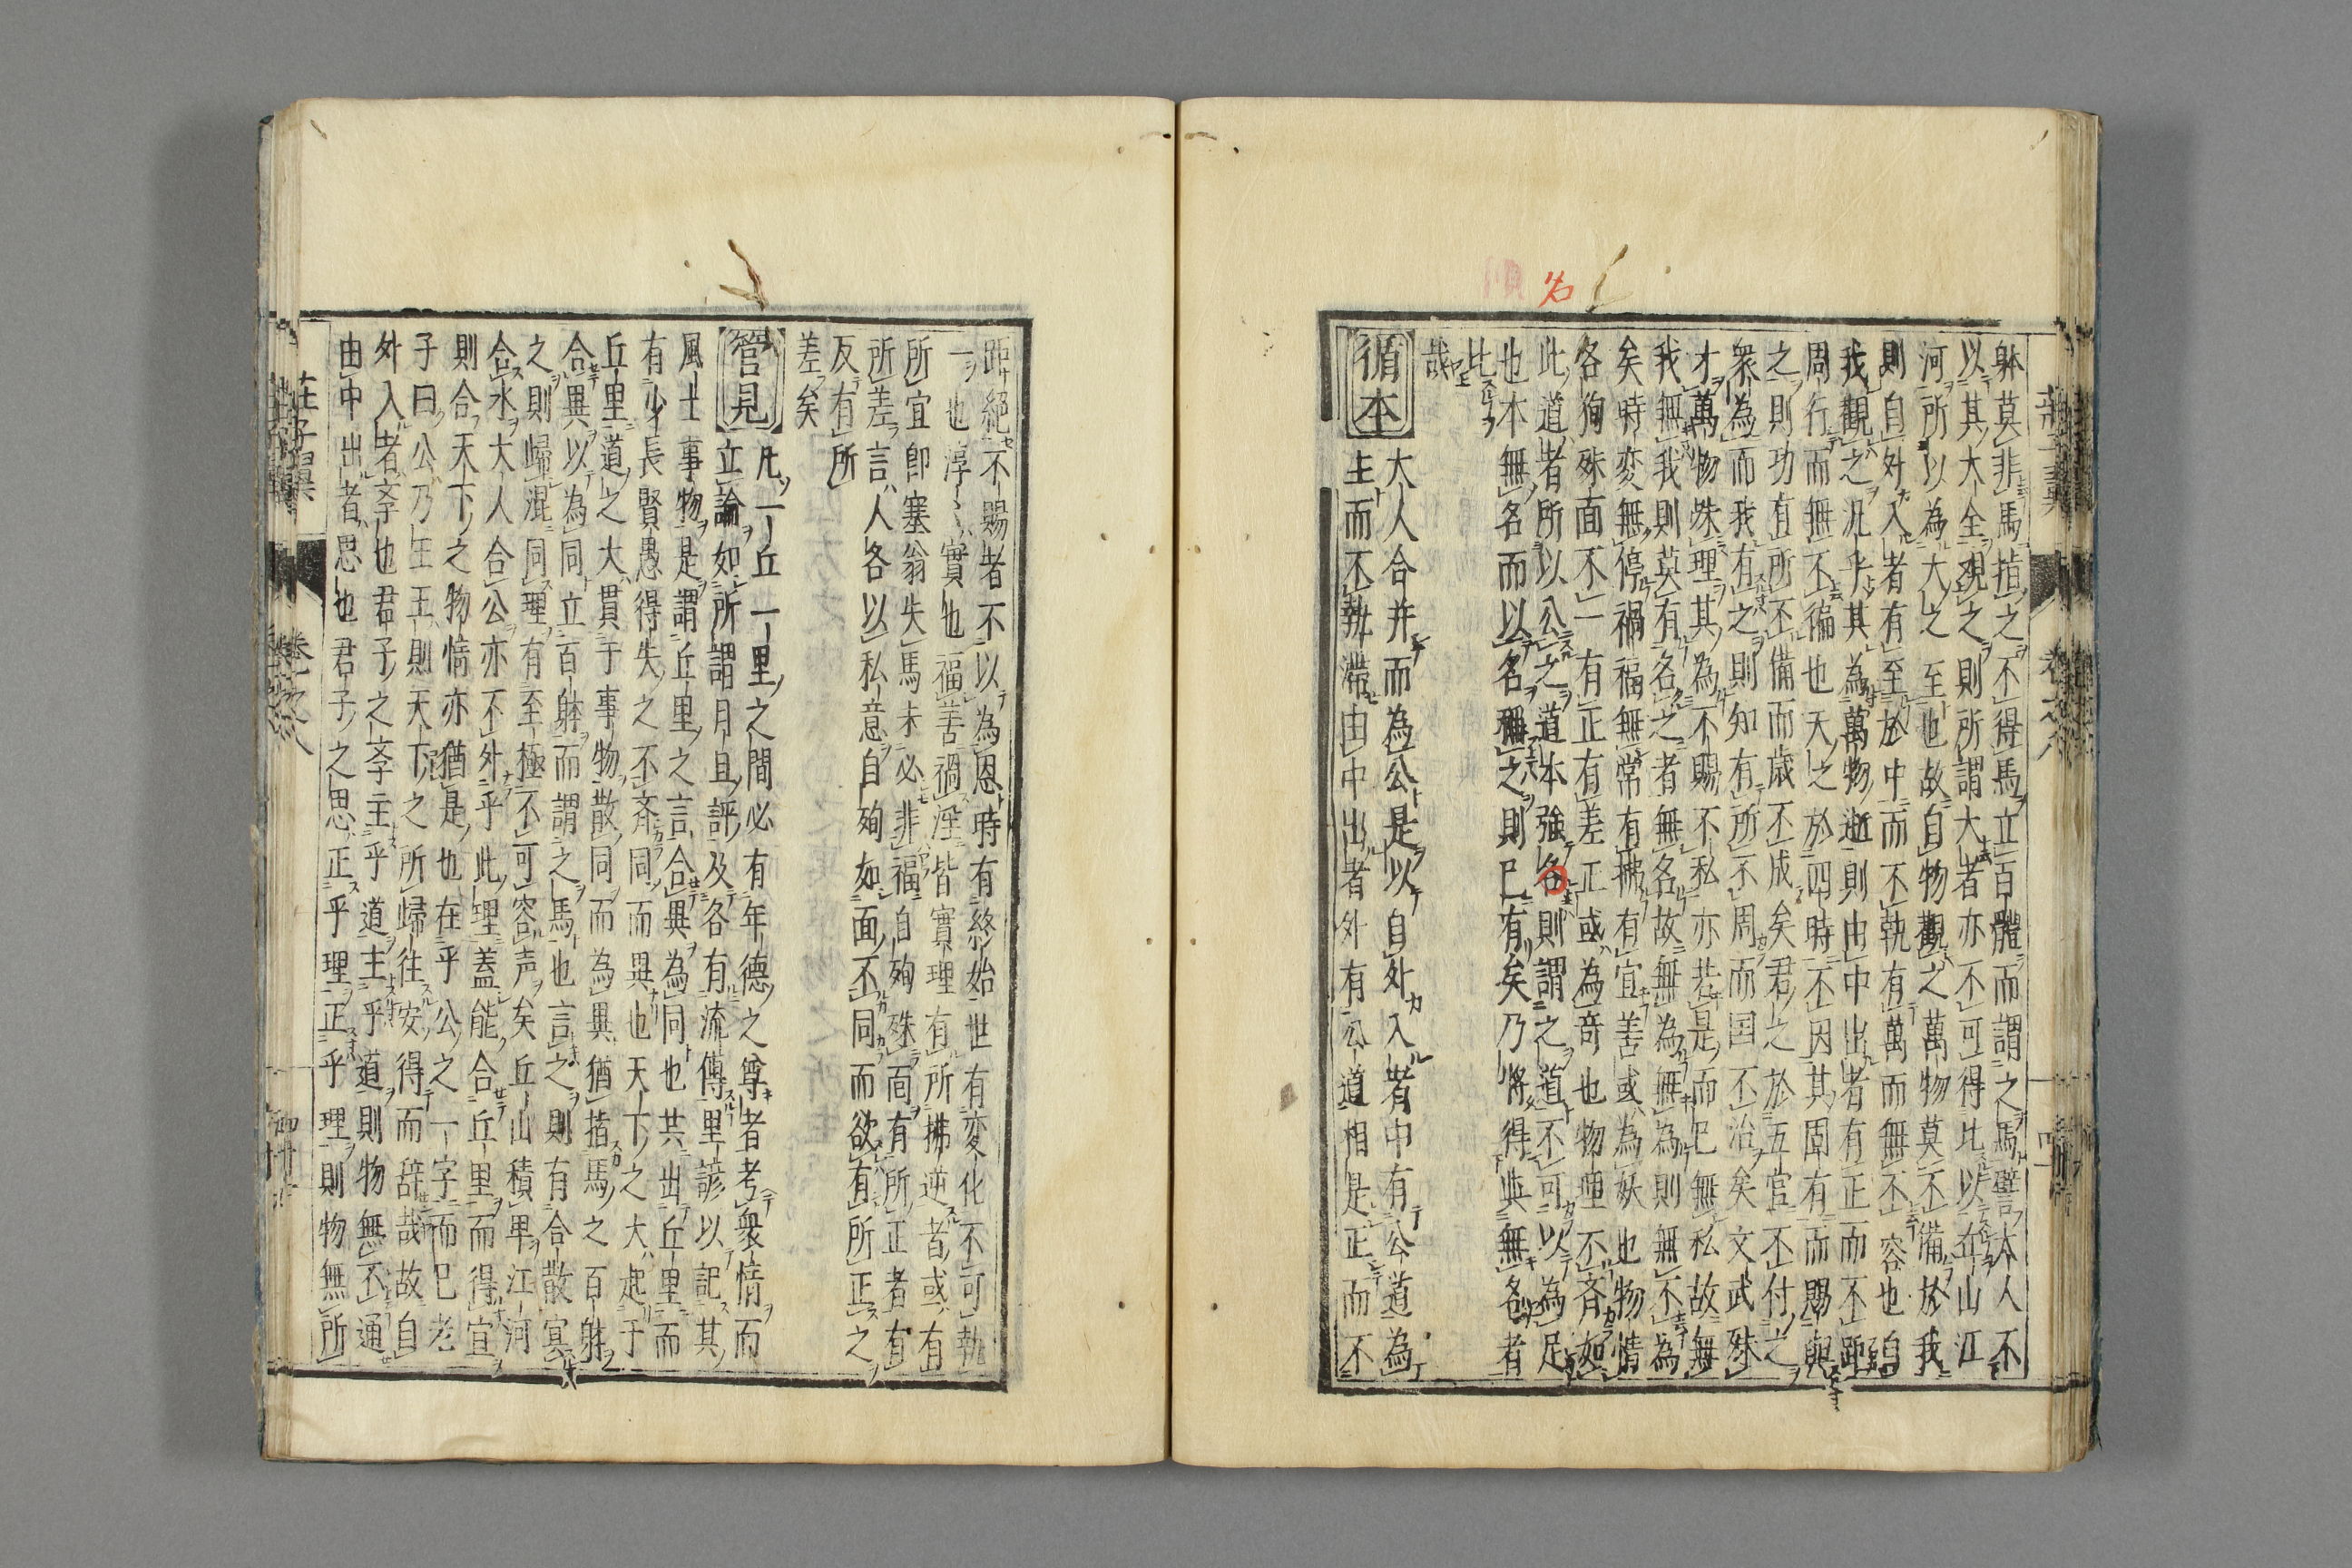 名
躰莫非馬指之不得馬立百體而謂之馬譬大人不
以其大全観之則所謂大者亦不可得比以在山江
河所以為大之至也故自物觀之萬物莫不備於我
則自外入者有至於中而不執有萬而無不容也自
我觀之汎乎其為萬物逝則由中出者有正而不距
周行而無不徧也天之於四時不因其固有而賜與
之則功有所不備而歳不成矣君之於五官不付之
衆為而我有之則知有所不周而国不治矣文武殊
才萬物殊理其為不賜不私亦若是而已無私故無
我無我則莫有各之者無各故無為無為則無不為
矣時変無停禍福無常有拂有宜善或為妖也物情
各徇殊面不一有正有差正或為竒也物理不斉如
此道者所以公之道本強各則謂之道不可以為足
也本無名而以名稱之則已有矣乃將得與無名者
比
哉
循本
大人合并而為公是以自外入者中有公道為
主而不執滯由中出者外有公道相是正而不
距絶不賜者不以為恩時有終始世有変化不可執
一也淳〻實也福善禍淫皆實理有所拂逆者或有
所宜卽塞翁失馬未必非福自殉殊面有所正者有
所差言人各以私意自殉如面不同而欲有所正之
反有所
差矣
管見
凡一丘一里之間必有年德之尊者考衆情而
立論如所謂月旦評及各有流傳里諺以記其
風土事物是謂丘里之言合異為同也共出丘里而
有少長賢愚得失之不斉同而異也天下之大起于
丘里道之大貫于事物散同而為異猶指馬之百躰
合異以為同立百躰而謂之馬也言之則有合散冥
之則歸混同理有至極不可容声矣丘山積卑江河
合水大人合公亦不外乎此理蓋能合丘里而得宜
則合天下之物情亦猶是也在乎公之一字而已老
子曰公乃王王則天下之所歸往安得而辞哉故自
外入者斉也君子之斉主乎道主乎道則物無不通
由中出者思也君子之思正乎理正乎理則物無所
荘子翼
卷之八